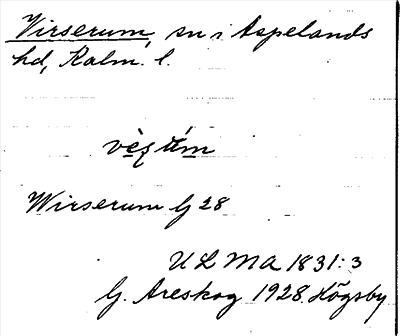 Virserum, sn i Aspelands
hd, Kalm. l.
Wirserum G 28
ULMA 1831:3
G. Areskog 1928 Högsby